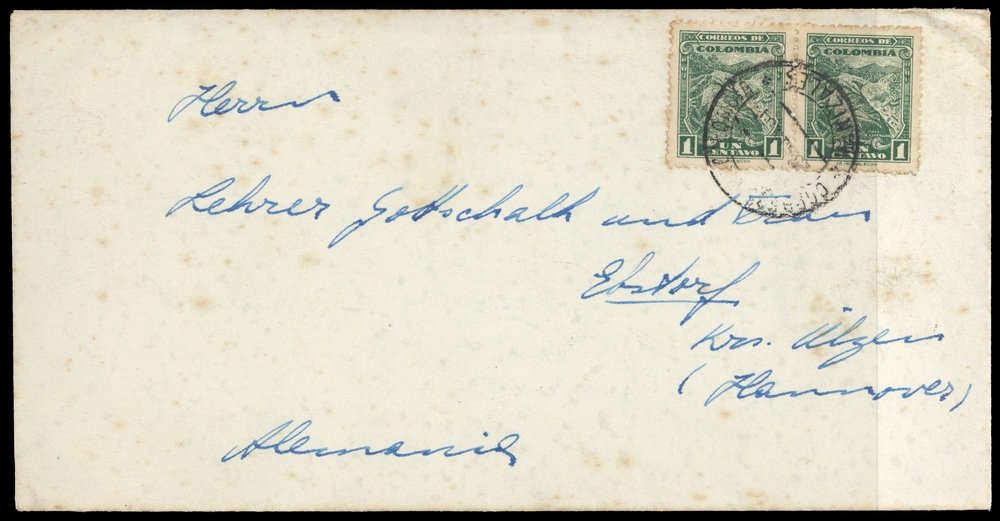 CORREOS DE COLOMBIA
1 UN CENTAVO 1
CORREOS DE COLOMBIA
1 CENTAVO 1
MANIZALES
Herrn
Lehrer Gottschalk und Frau
Ebstorf
Krs. Ülzen
(Hannover)
Alemania